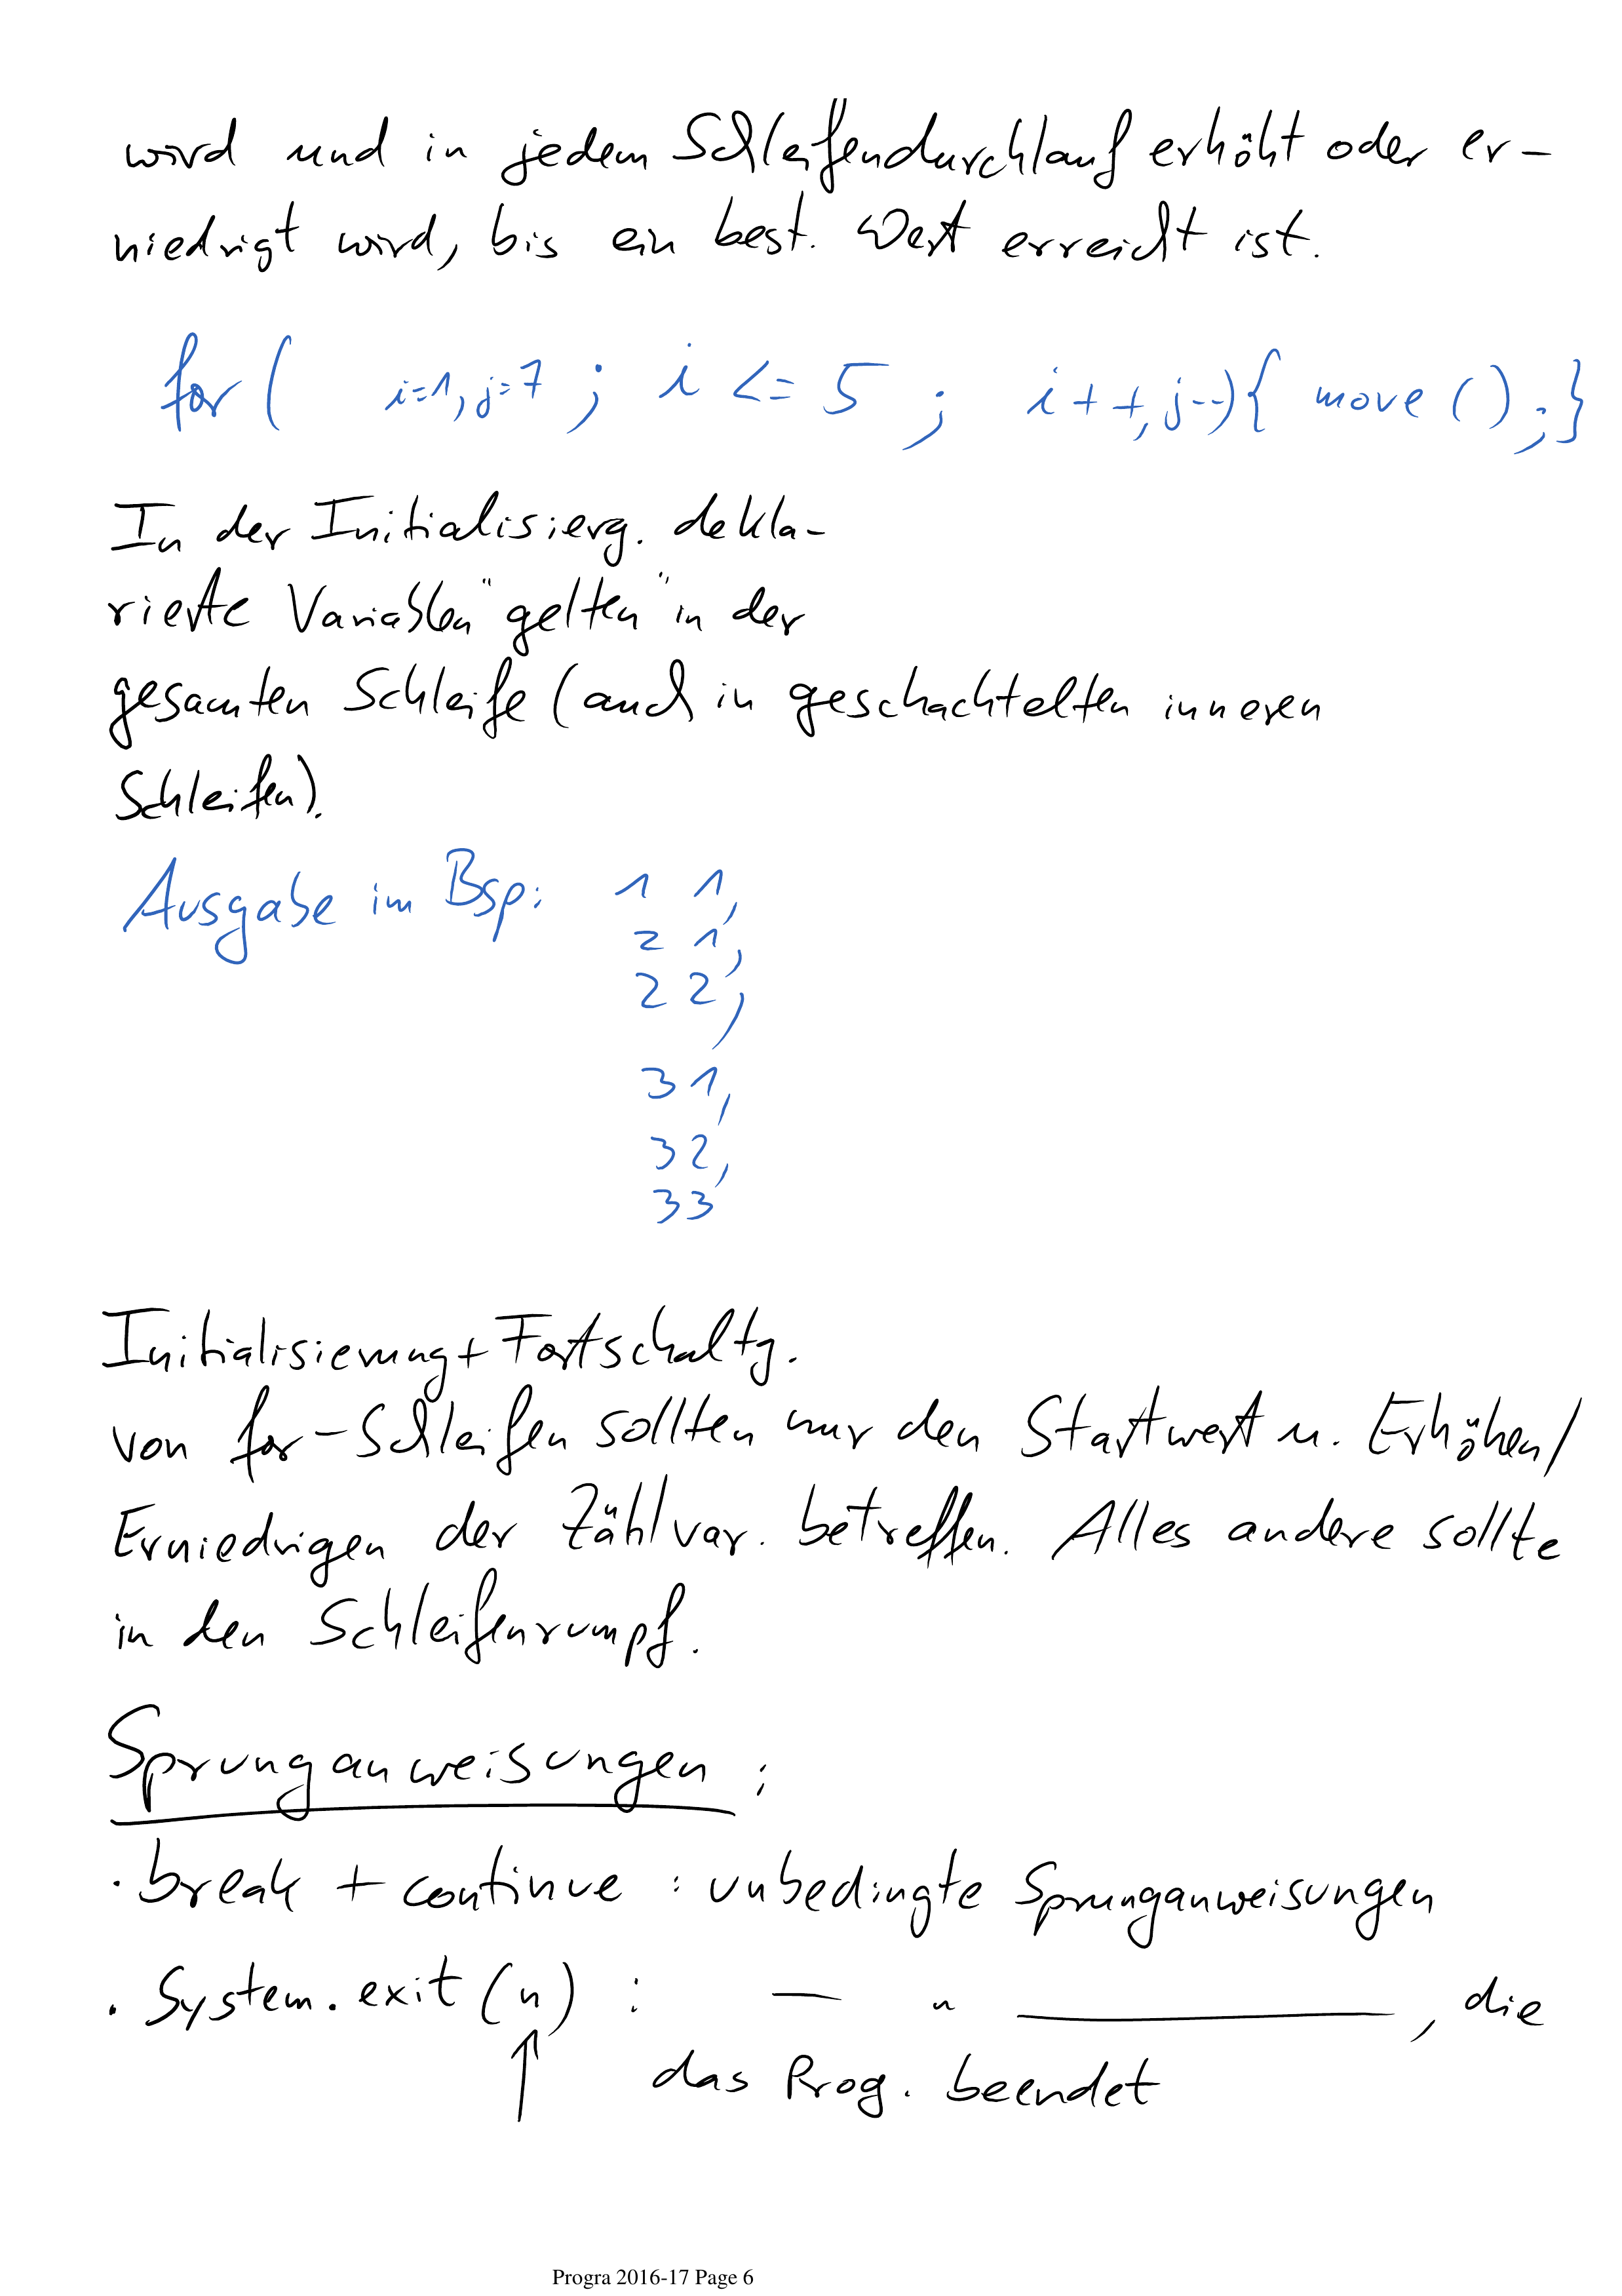 wird und in jedem Schleifendurchlauf erhöht oder er-
niedrigt wird, bis ein best. Wert erreicht ist.
for ( i=1, j=7 ; i <= 5 ; i++, j--){ move ( ) ; }
In der Initialisierg. dekla-
rierte Variablen "gelten" in der
gesamten Schleife (auch in geschachtelten inneren
Schleifen).
Ausgabe im Bsp: 1 1,
2 1,
2 2,
3 1,
3 2,
3 3
Initialisierung + Fortschaltg.
von for-Schleifen sollten nur den Startwert u. Erhöhen/
Erniedrigen der Zählvar. betreffen. Alles andere sollte
in den Schleifenrumpf.
Sprunganweisungen :
· break + continue : unbedingte Sprunganweisungen
· System.exit (n) : — " —, die
↑ das Prog. beendet
Progra 2016-17 Page 6